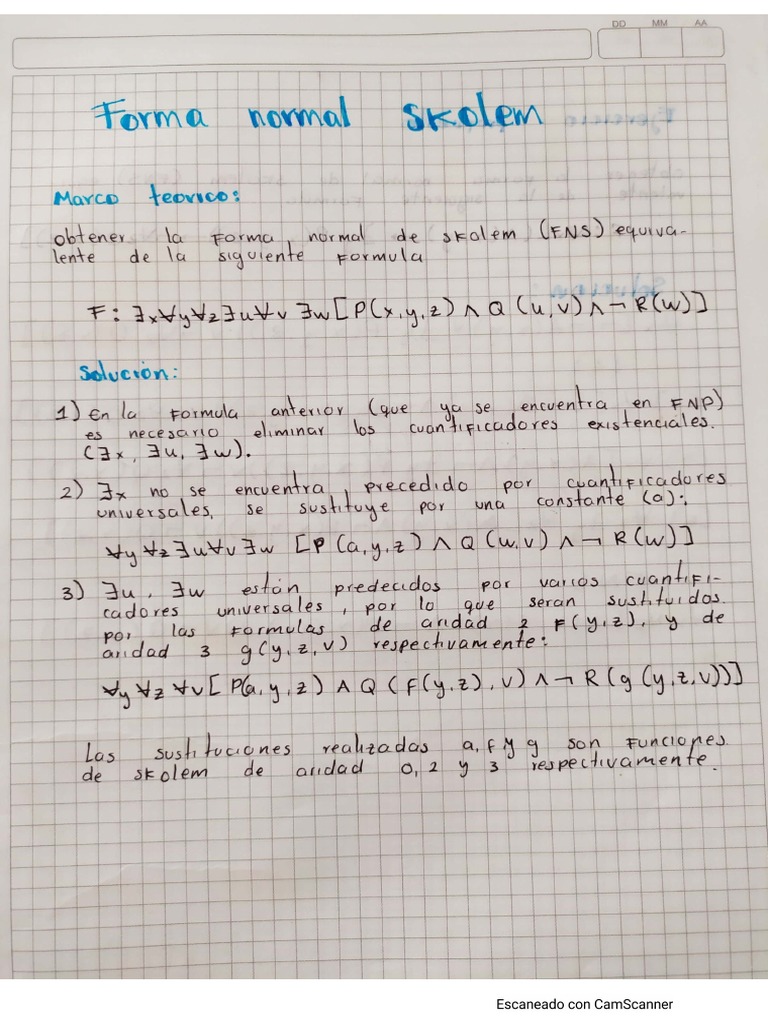 DD MM AA
Forma normal skolem
Marco teorico:
obtener la forma normal de skolem (FNS) equiva-
lente de la siguiente formula
F: ∃x∀y∀z∃u∀v ∃w[P(x,y,z) ∧ Q (u,v) ∧ ¬ R(w)]
Solución:
1) En la formula anterior (que ya se encuentra en FNP)
es necesario eliminar los cuantificadores existenciales.
(∃x, ∃u, ∃w).
2) ∃x no se encuentra precedido por cuantificadores
universales, se sustituye por una constante (a):
∀y ∀z ∃u∀v ∃w [P (a,y,z) ∧ Q (u,v) ∧ ¬ R(w)]
3) ∃u, ∃w están predecidos por varios cuantifi-
cadores universales, por lo que seran sustituidos
por las formulas de aridad 2 F(y,z), y de
aridad 3 g(y,z,v) respectivamente:
∀y ∀z ∀v[P(a,y,z) ∧ Q (F(y,z),v) ∧ ¬ R(g(y,z,v))]
Las sustituciones realizadas a,f y g son funciones
de skolem de aridad 0,2 y 3 respectivamente.
Escaneado con CamScanner